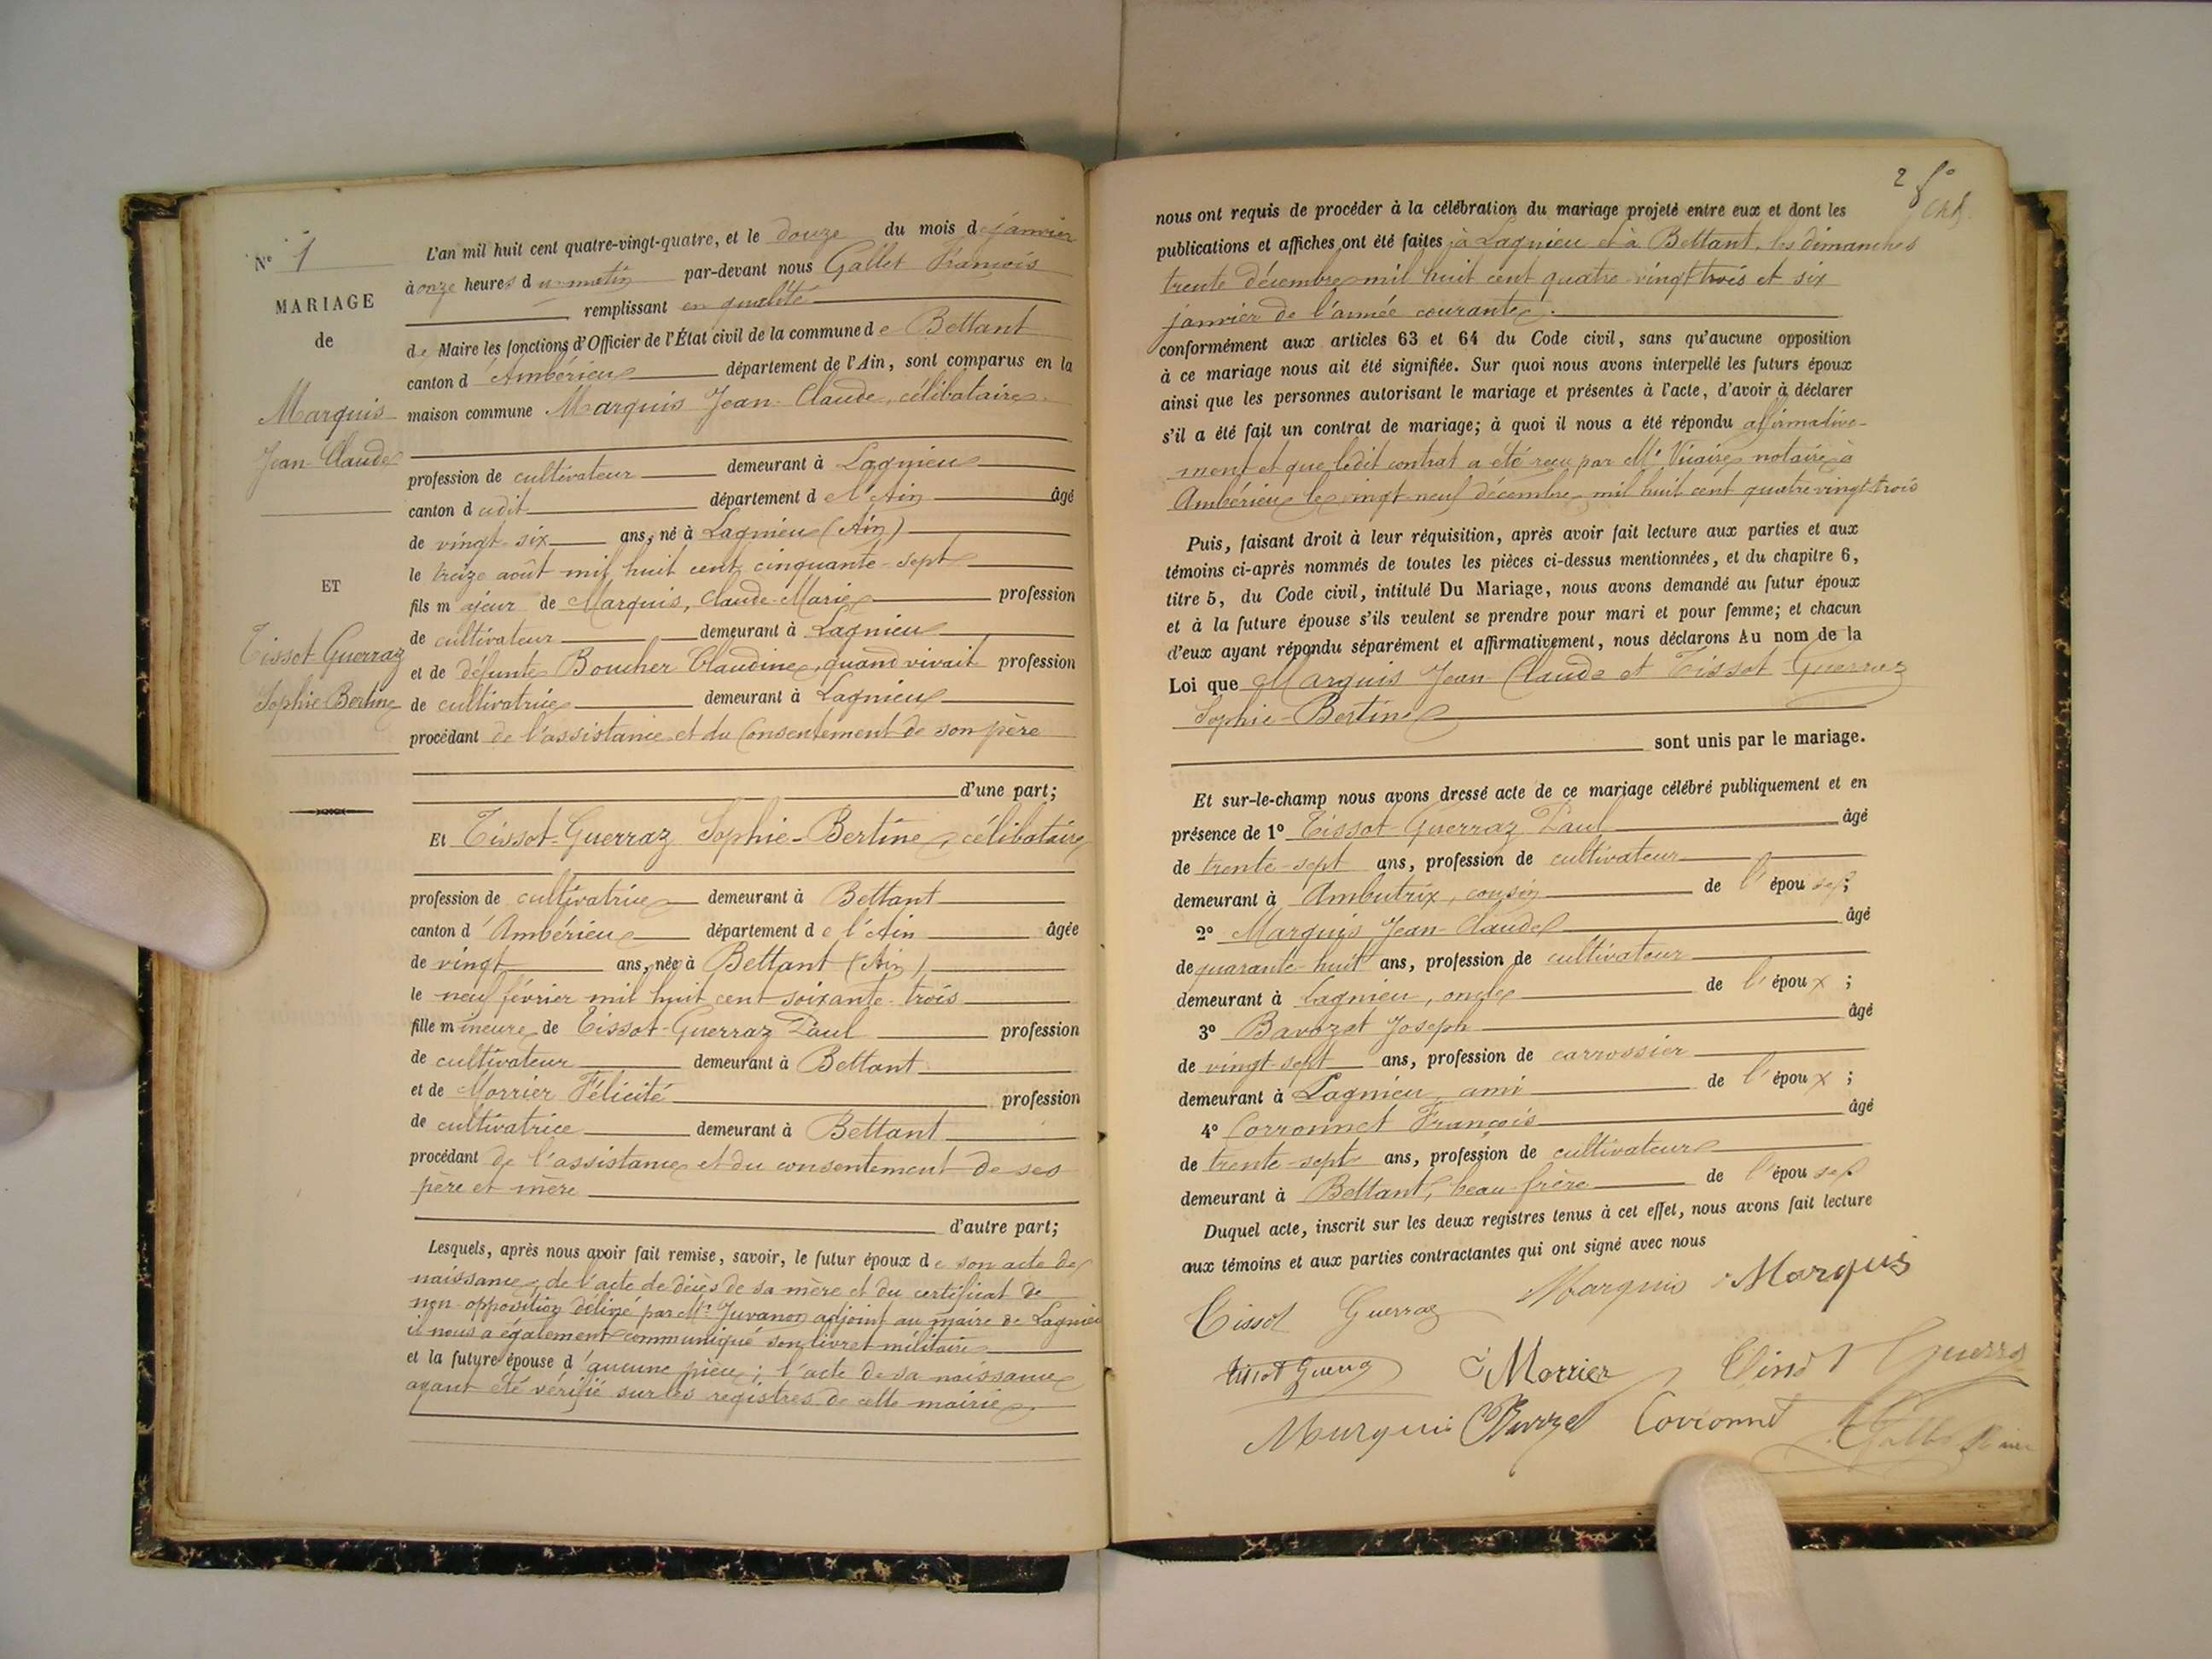 N° 1
MARIAGE
de
Marquis
Jean-Claude
ET
Tissot-Guerraz
Sophie-Bertine
L'an mil huit cent quatre-vingt-quatre, et le douze du mois de janvier
à onze heures du matin par-devant nous Gallet François
remplissant en qualité
de Maire les fonctions d'Officier de l'État civil de la commune de Bettant
canton d'Ambérieu département de l'Ain, sont comparus en la
maison commune Marquis Jean-Claude, célibataire
profession de cultivateur demeurant à Lagnieu
canton dudit département de l'Ain âgé
de vingt-six ans, né à Lagnieu (Ain)
le treize août mil huit cent cinquante-sept
fils majeur de Marquis, Claude-Marie profession
de cultivateur demeurant à Lagnieu
et de défunte Boucher Claudine, quand vivait profession
de cultivatrice demeurant à Lagnieu
procédant de l'assistance et du consentement de son père
d'une part;
Et Tissot-Guerraz Sophie-Bertine, célibataire
profession de cultivatrice demeurant à Bettant
canton d'Ambérieu département de l'Ain âgée
de vingt ans, née à Bettant (Ain)
le neuf février mil huit cent soixante-trois
fille mineure de Tissot-Guerraz Paul profession
de cultivateur demeurant à Bettant
et de Morrier Félicité profession
de cultivatrice demeurant à Bettant
procédant de l'assistance et du consentement de ses
père et mère
d'autre part;
Lesquels, après nous avoir fait remise, savoir, le futur époux de son acte de
naissance, de l'acte de décès de sa mère et du certificat de
non-opposition délivré par Mr Juvanon adjoint au maire de Lagnieu
il nous a également communiqué son livret militaire
et la future épouse d'aucune pièce; l'acte de sa naissance
ayant été vérifié sur les registres de cette mairie.
2
nous ont requis de procéder à la célébration du mariage projeté entre eux et dont les
publications et affiches ont été faites à Lagnieu et à Bettant, les dimanches
trente décembre mil huit cent quatre-vingt-trois et six
janvier de l'année courante.
conformément aux articles 63 et 64 du Code civil, sans qu'aucune opposition
à ce mariage nous ait été signifiée. Sur quoi nous avons interpellé les futurs époux
ainsi que les personnes autorisant le mariage et présentes à l'acte, d'avoir à déclarer
s'il a été fait un contrat de mariage; à quoi il nous a été répondu affirmative-
ment et que ledit contrat a été reçu par Me Vicaire notaire à
Ambérieu le vingt-neuf décembre mil huit cent quatre vingt-trois
Puis, faisant droit à leur réquisition, après avoir fait lecture aux parties et aux
témoins ci-après nommés de toutes les pièces ci-dessus mentionnées, et du chapitre 6,
titre 5, du Code civil, intitulé Du Mariage, nous avons demandé au futur époux
et à la future épouse s'ils veulent se prendre pour mari et pour femme; et chacun
d'eux ayant répondu séparément et affirmativement, nous déclarons Au nom de la
Loi que Marquis Jean-Claude et Tissot Guerraz
Sophie-Bertine
sont unis par le mariage.
Et sur-le-champ nous avons dressé acte de ce mariage célébré publiquement et en
présence de 1° Tissot-Guerraz Paul âgé
de trente-sept ans, profession de cultivateur
demeurant à Ambutrix, cousin de l'épouse;
2° Marquis Jean-Claude âgé
de quarante-huit ans, profession de cultivateur
demeurant à Lagnieu, oncle de l'époux;
3° Bavozet Joseph âgé
de vingt-sept ans, profession de carrossier
demeurant à Lagnieu, ami de l'époux;
4° Corronnet François âgé
de trente-sept ans, profession de cultivateur
demeurant à Bettant, beau-frère de l'épouse
Duquel acte, inscrit sur les deux registres tenus à cet effet, nous avons fait lecture
aux témoins et aux parties contractantes qui ont signé avec nous
Tissot Guerraz Marquis Marquis
Morrier
Marquis